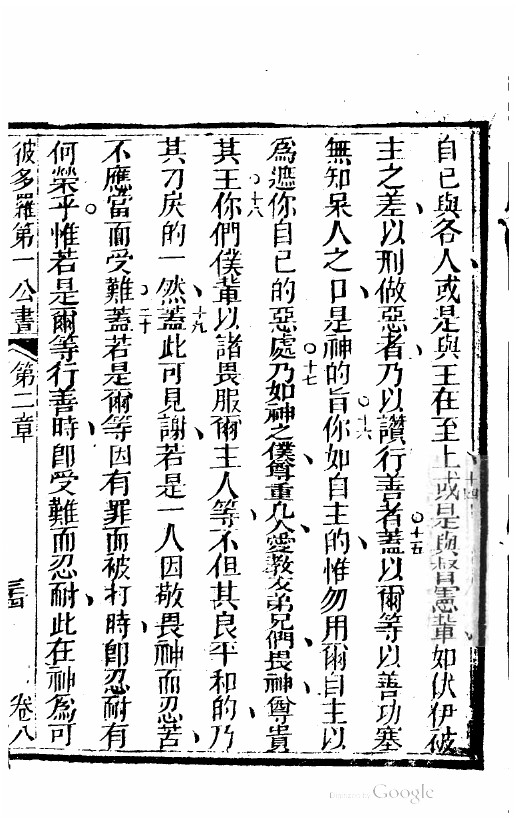 自己與各人或是與王在至上或是與督憲輩如伏伊彼
主之差以刑做惡者乃以讚行善者蓋以爾等以善功塞
無知呆人之口是神的旨你如自主的惟勿用爾自主以
為遮你自己的惡處乃如神之僕尊重凡人愛教友弟兄們畏神尊貴
其王你們僕輩以諸畏服爾主人等不但其良平和的乃
其刁戾的一然蓋此可見謝若是一人因敬畏神而忍苦
不應當而受難蓋若是爾等因有罪而被打時即忍耐有
何榮乎惟若是爾等行善時即受難而忍耐此在神為可
彼多羅第一公書 第二章 三四 卷八
十四
十五
十六
十七
十八
十九
二十
Digitized by Google